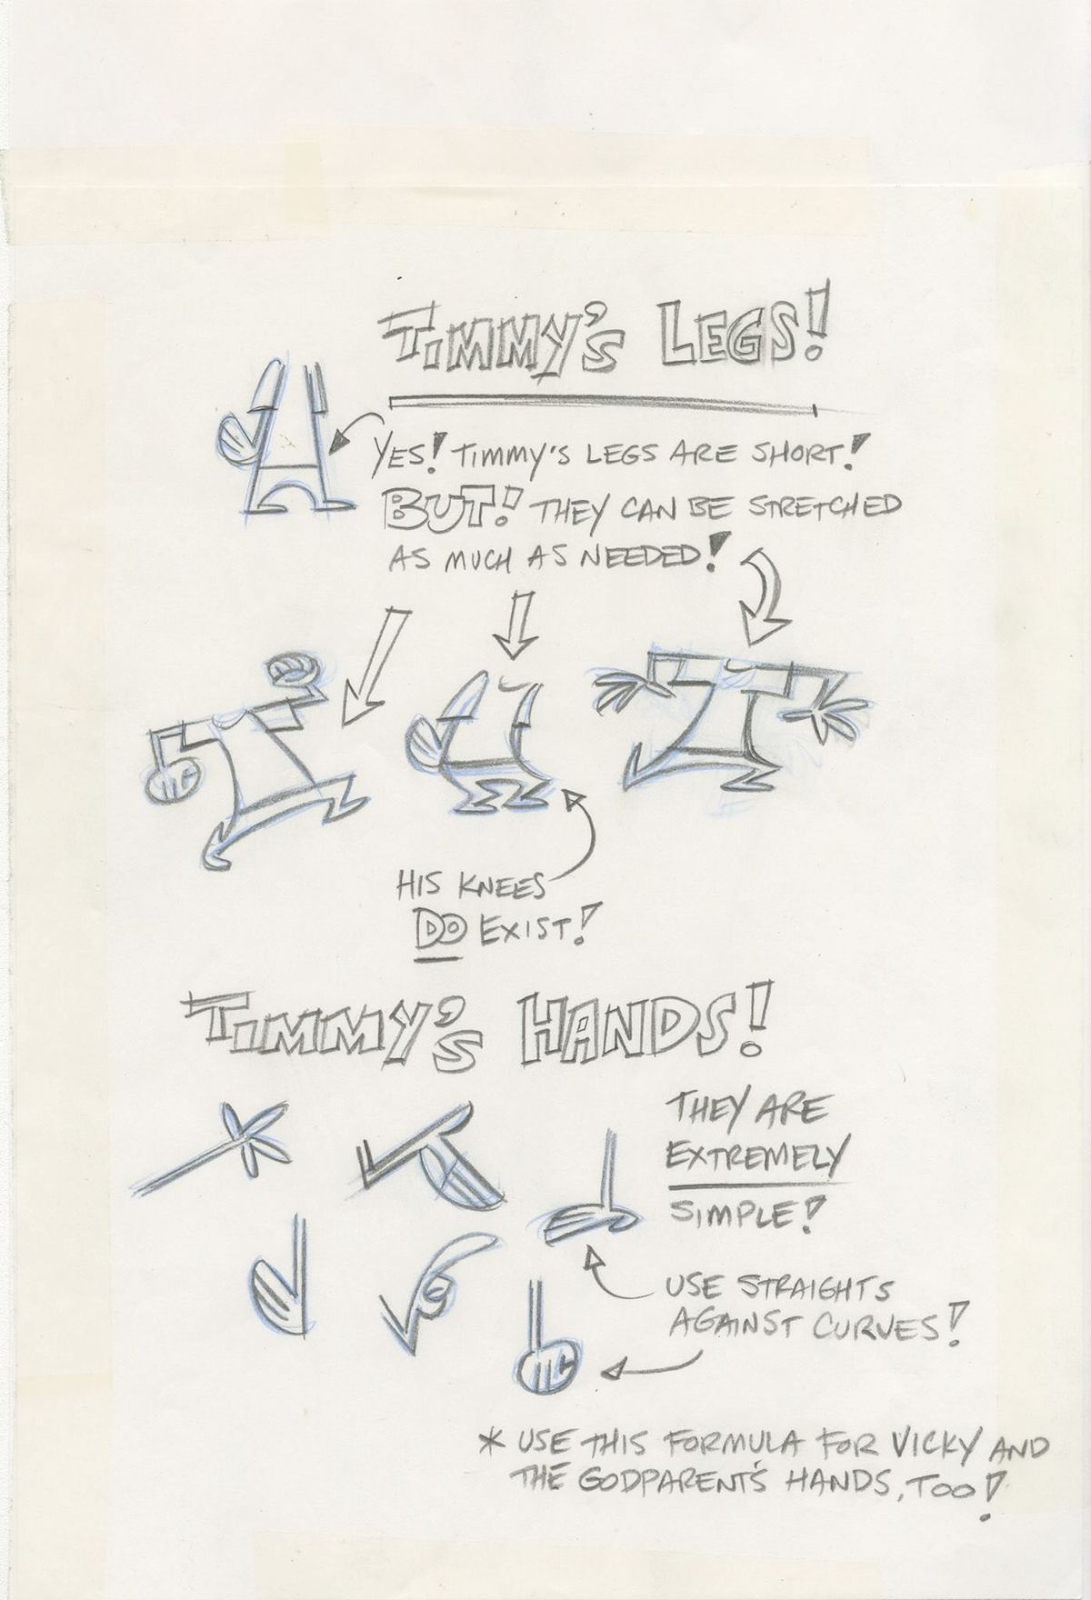 TIMMY'S LEGS!
YES! TIMMY'S LEGS ARE SHORT!
BUT! THEY CAN BE STRETCHED
AS MUCH AS NEEDED!
HIS KNEES
DO EXIST!
TIMMY'S HANDS!
THEY ARE
EXTREMELY
SIMPLE!
USE STRAIGHTS
AGAINST CURVES!
* USE THIS FORMULA FOR VICKY AND
THE GODPARENT'S HANDS, TOO!